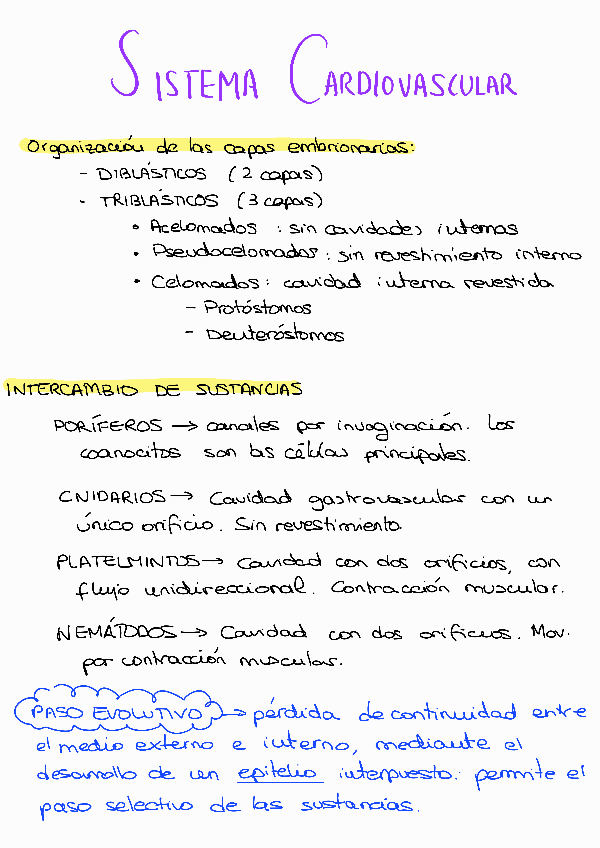 SISTEMA CARDIOVASCULAR
Organización de las capas embrionarias:
- DIBLÁSTICOS (2 capas)
- TRIBLÁSTICOS (3 capas)
• Acelomados : sin cavidades internas
• Pseudocelomados : sin revestimiento interno
• Celomados : cavidad interna revestida
- Protóstomos
- Deuteróstomos
INTERCAMBIO DE SUSTANCIAS
PORÍFEROS → canales por invaginación. Los
coanocitos son las células principales.
CNIDARIOS → Cavidad gastrovascular con un
único orificio. Sin revestimiento
PLATELMINTOS → Cavidad con dos orificios, con
flujo unidireccional. Contracción muscular.
NEMÁTODOS → Cavidad con dos orificios. Mov.
por contracción muscular.
PASO EVOLUTIVO → pérdida de continuidad entre
el medio externo e interno, mediante el
desarrollo de un epitelio interpuesto. permite el
paso selectivo de las sustancias.